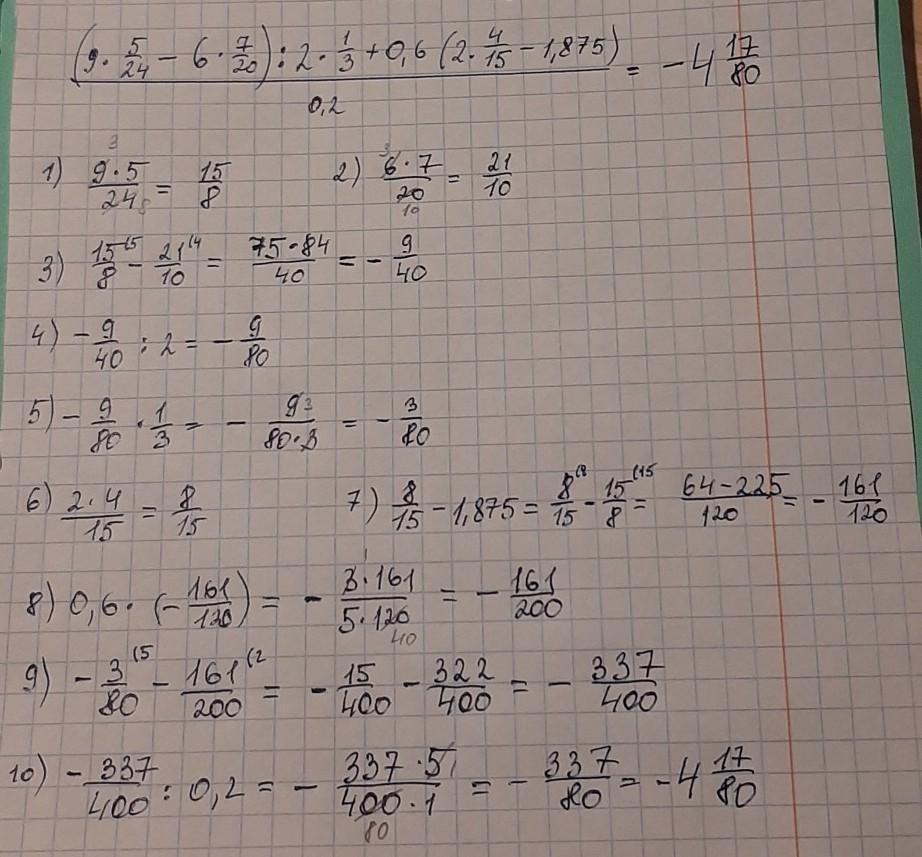 (9 · 5/24 − 6 · 7/20) : 2 · 1/3 + 0,6 (2 · 4/15 − 1,875) / 0,2 = −4 17/80
1) 9·5/24 = 15/8 2) 6·7/20 = 21/10
3) 15/8 − 21/10 = 75−84/40 = −9/40
4) −9/40 : 2 = −9/80
5) −9/80 · 1/3 = − 9/80·3 = −3/80
6) 2·4/15 = 8/15 7) 8/15 − 1,875 = 8/15 − 15/8 = 64−225/120 = −161/120
8) 0,6 · (−161/120) = − 3·161/5·120 = −161/200
9) −3/80 − 161/200 = −15/400 − 322/400 = −337/400
10) −337/400 : 0,2 = − 337·5/400·1 = −337/80 = −4 17/80